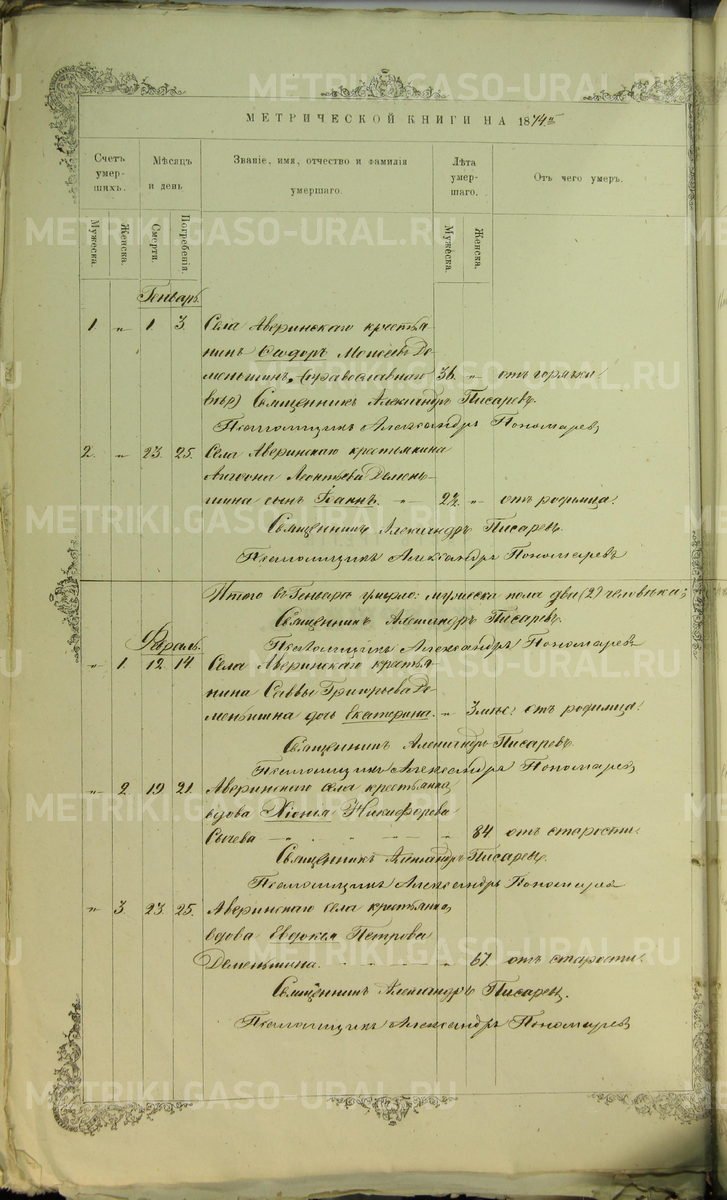 METRIKI.GASO-URAL.RU
МЕТРИЧЕСКОЙ КНИГИ НА 1874й
Счетъ умершихъ. Мѣсяцъ и день Званіе, имя, отчество и фамилія умершаго. Лѣта умершаго. Отъ чего умеръ.
Мужеска. Женска. Смерти. Погребенія. Мужеска. Женска.
Генварь.
1 „ 1 3. Села Аверинскаго крестья-
нинъ Ѳеодоръ Моисеевъ Де-
меньшинъ, (православнаго 36. „ отъ горячки
вѣр) Священникъ Александръ Писаревъ.
Псаломщикъ Александръ Пономаревъ
2. „ 23. 25. Села Аверинскаго крестьянина
Леонтьева Демень-
шина сынъ Іоаннъ. „ „ отъ родимца.
Священникъ Александръ Писаревъ.
Псаломщикъ Александръ Пономаревъ
Итого въ Генварѣ умерло: мужеска пола два (2) человѣка;
Священникъ Александръ Писаревъ.
Псаломщикъ Александръ Пономаревъ
Февраль.
„ 1. 12. 14. Села Аверинскаго крестья-
нина Саввы Григорьева Де-
меньшина дочь Екатерина. „ 3 мѣс: отъ родимца.
Священникъ Александръ Писаревъ.
Псаломщикъ Александръ Пономаревъ
„ 2. 19 21. Аверинскаго села крестьянка
вдова Хіонія Никифорова
Сычева „ 84 отъ старости.
Священникъ Александръ Писаревъ.
Псаломщикъ Александръ Пономаревъ
„ 3. 23. 25. Аверинскаго села крестьянка,
вдова Евдокія Петрова
Деменьшина. „ 67. отъ старости.
Священникъ Александръ Писаревъ.
Псаломщикъ Александръ Пономаревъ